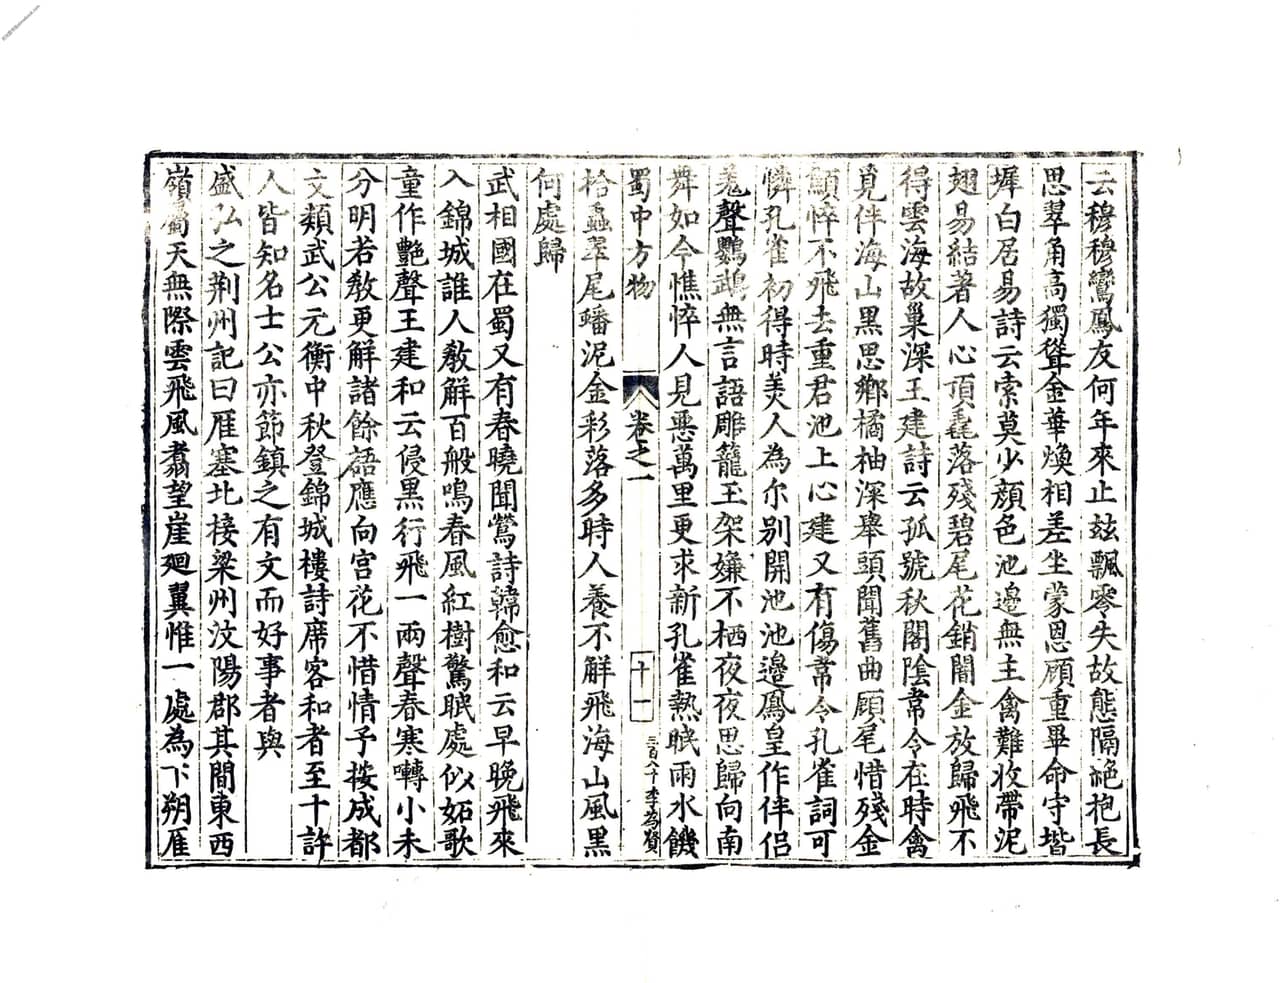 云穆穆鸞鳳友何年來止玆飄零失故態隔絕抱長
思翠角高獨聳金華煥相差坐蒙恩顧重畢命守堦
墀白居易詩云索莫少顏色池邊無主禽難收帶泥
翅易結著人心頂毳落殘碧尾花銷闇金放歸飛不
得雲海故巢深王建詩云孤號秋閣陰常令在時禽
覓伴海山黑思鄉橘柚深舉頭聞舊曲顧尾惜殘金
顦悴不飛去重君池上心建又有傷常令孔雀詞可
憐孔雀初得時美人為尔別開池池邊鳳皇作伴侶
羗聲鸚鵡無言語雕籠玉架嫌不栖夜夜思歸向南
舞如今憔悴人見惡萬里更求新孔雀熱眠雨水饑
蜀中方物 卷之一 十一 三百八十 李為贊
拾蟲翠尾蟠泥金彩落多時人養不解飛海山風黑
何處歸
武相國在蜀又有春曉聞鶯詩韓愈和云早晚飛來
入錦城誰人敎解百般鳴春風紅樹驚眠處似妬歌
童作艷聲王建和云侵黑行飛一兩聲春寒囀小未
分明若敎更解諸餘語應向宮花不惜情予按成都
文類武公元衡中秋登錦城樓詩席客和者至十許
人皆知名士公亦節鎮之有文而好事者與
盛弘之荆州記曰雁塞北接梁州汶陽郡其間東西
嶺屬天無際雲飛風翥望崖廻翼惟一處為下朔雁